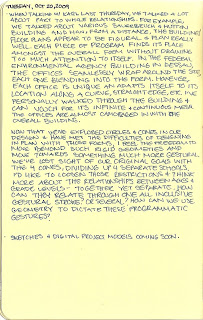 TUESDAY, OCT 20, 2009
WHEN TALKING W/ KARL LAST THURSDAY, WE TALKED A LOT
ABOUT PART TO WHOLE RELATIONSHIPS. FOR EXAMPLE,
WE TALKED ABOUT VARIOUS SAUERBRUCH & HUTTON
BUILDING AND HOW, FROM A DISTANCE, THE BUILDING/
FLOOR PLANS APPEAR TO BE FIGURAL & FLOW REALLY
WELL. EACH PIECE OF PROGRAM FINDS ITS PLACE
AMONGST THE OVERALL FORM WITHOUT DRAWING
TOO MUCH ATTENTION TO ITSELF. IN THE FEDERAL
ENVIRONMENTAL AGENCY BUILDING IN DESSAU,
THE OFFICES SEAMLESSLY WRAP AROUND THE SITE,
EACH ONE BLENDING INTO THE FORM. HOWEVER,
EACH OFFICE IS UNIQUE AN ADAPTS ITSELF TO ITS
LOCATION ALONG A CURVE, STRAIGHT EDGE, ETC. I'VE
PERSONALLY WALKED THROUGH THE BUILDINGS &
CAN VOUCH FOR ITS INFINITE & CONTINUOUS MERIT.
THE OFFICES ARE ALMOST CAMOFLAGED IN WITH THE
OVERALL BUILDING.
NOW THAT WE'VE EXPLORED CIRCLES & CONES IN OUR
DESIGN & HAVE MET THE DIFFICULTIES OF DESIGNING
IN PLAN WITH THOSE FORMS, I FEEL THE FREEDOM TO
MOVE BEYOND SUCH RIGID GEOMETRIES AND
MOVE TOWARDS SOMETHING MUCH MORE GESTURAL.
WE'VE LOST SIGHT OF OUR ORIGINAL GOALS WITH
THE 4 CONES, DIVIDING UP 4 SEPARATE SCHOOLS.
I'D LIKE TO LOOSEN THOSE RESTRICTIONS & THINK
MORE ABOUT THE RELATIONSHIPS BETWEEN AGES &
GRADE LEVELS - TOGETHER YET SEPARATE. HOW
CAN THEY RELATE THROUGH ONE ALL INCLUSIVE
GESTURAL STROKE? OR SEVERAL? HOW CAN WE USE
GEOMETRY TO DICTATE THESE PROGRAMMATIC
GESTURES?
SKETCHES & DIGITAL PROJECT MODELS COMING SOON.